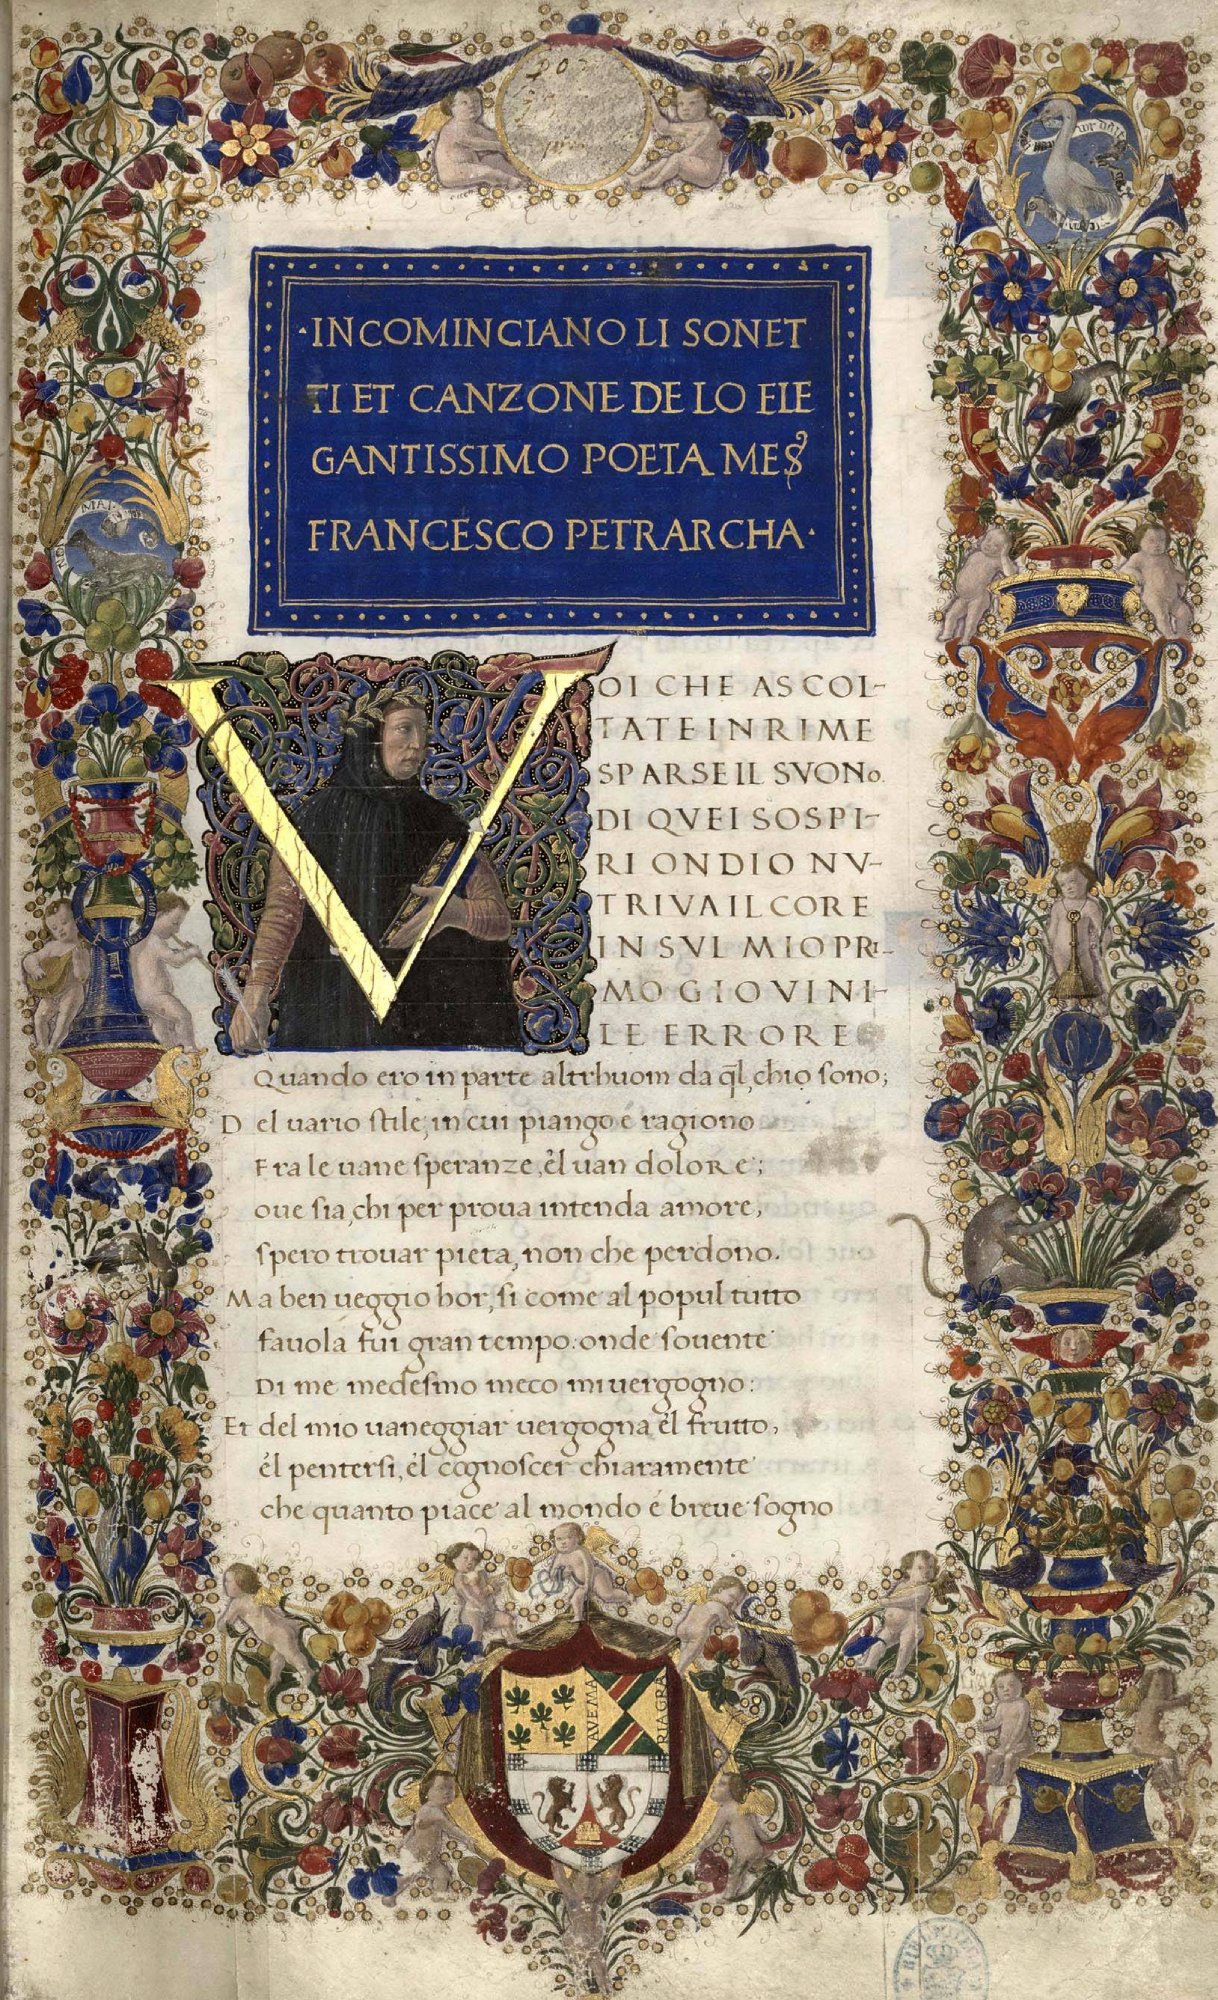 ·INCOMINCIANO LI SONET
TI ET CANZONE DE LO ELE
GANTISSIMO POETA MES
FRANCESCO PETRARCHA·
VOI CHE ASCOL-
TATE IN RIME
SPARSE IL SVONo
DI QVEI SOSPI-
RI ONDIO NV-
TRIVA IL CORE
IN SVL MIO PRI-
MO GIOVINI-
LE ERRORE
Quando ero in parte altrhuom da q̄l, chio sono;
Del uario stile, in cui piango é ragiono
Fra le uane speranze, èl uan dolore;
oue sia, chi per proua intenda amore,
spero trouar pieta, non che perdono.
Ma ben ueggio hor, si come al popul tutto
fauola fui gran tempo: onde souente
Di me medesmo meco mi uergogno:
Et del mio uaneggiar uergogna èl frutto,
èl pentersi, èl cognoscer chiaramente
che quanto piace al mondo é breue sogno
AVE MA
RIA GRA